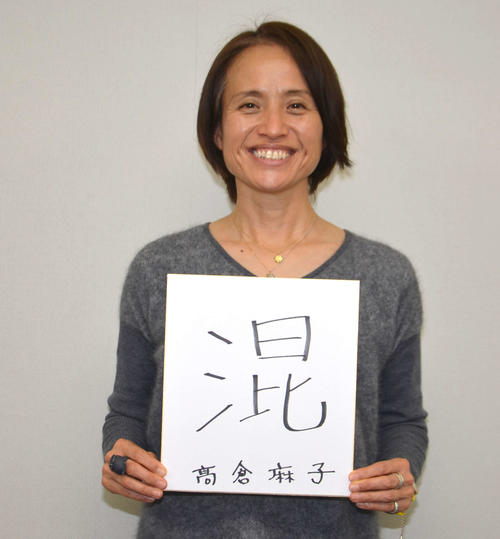 混
高倉麻子